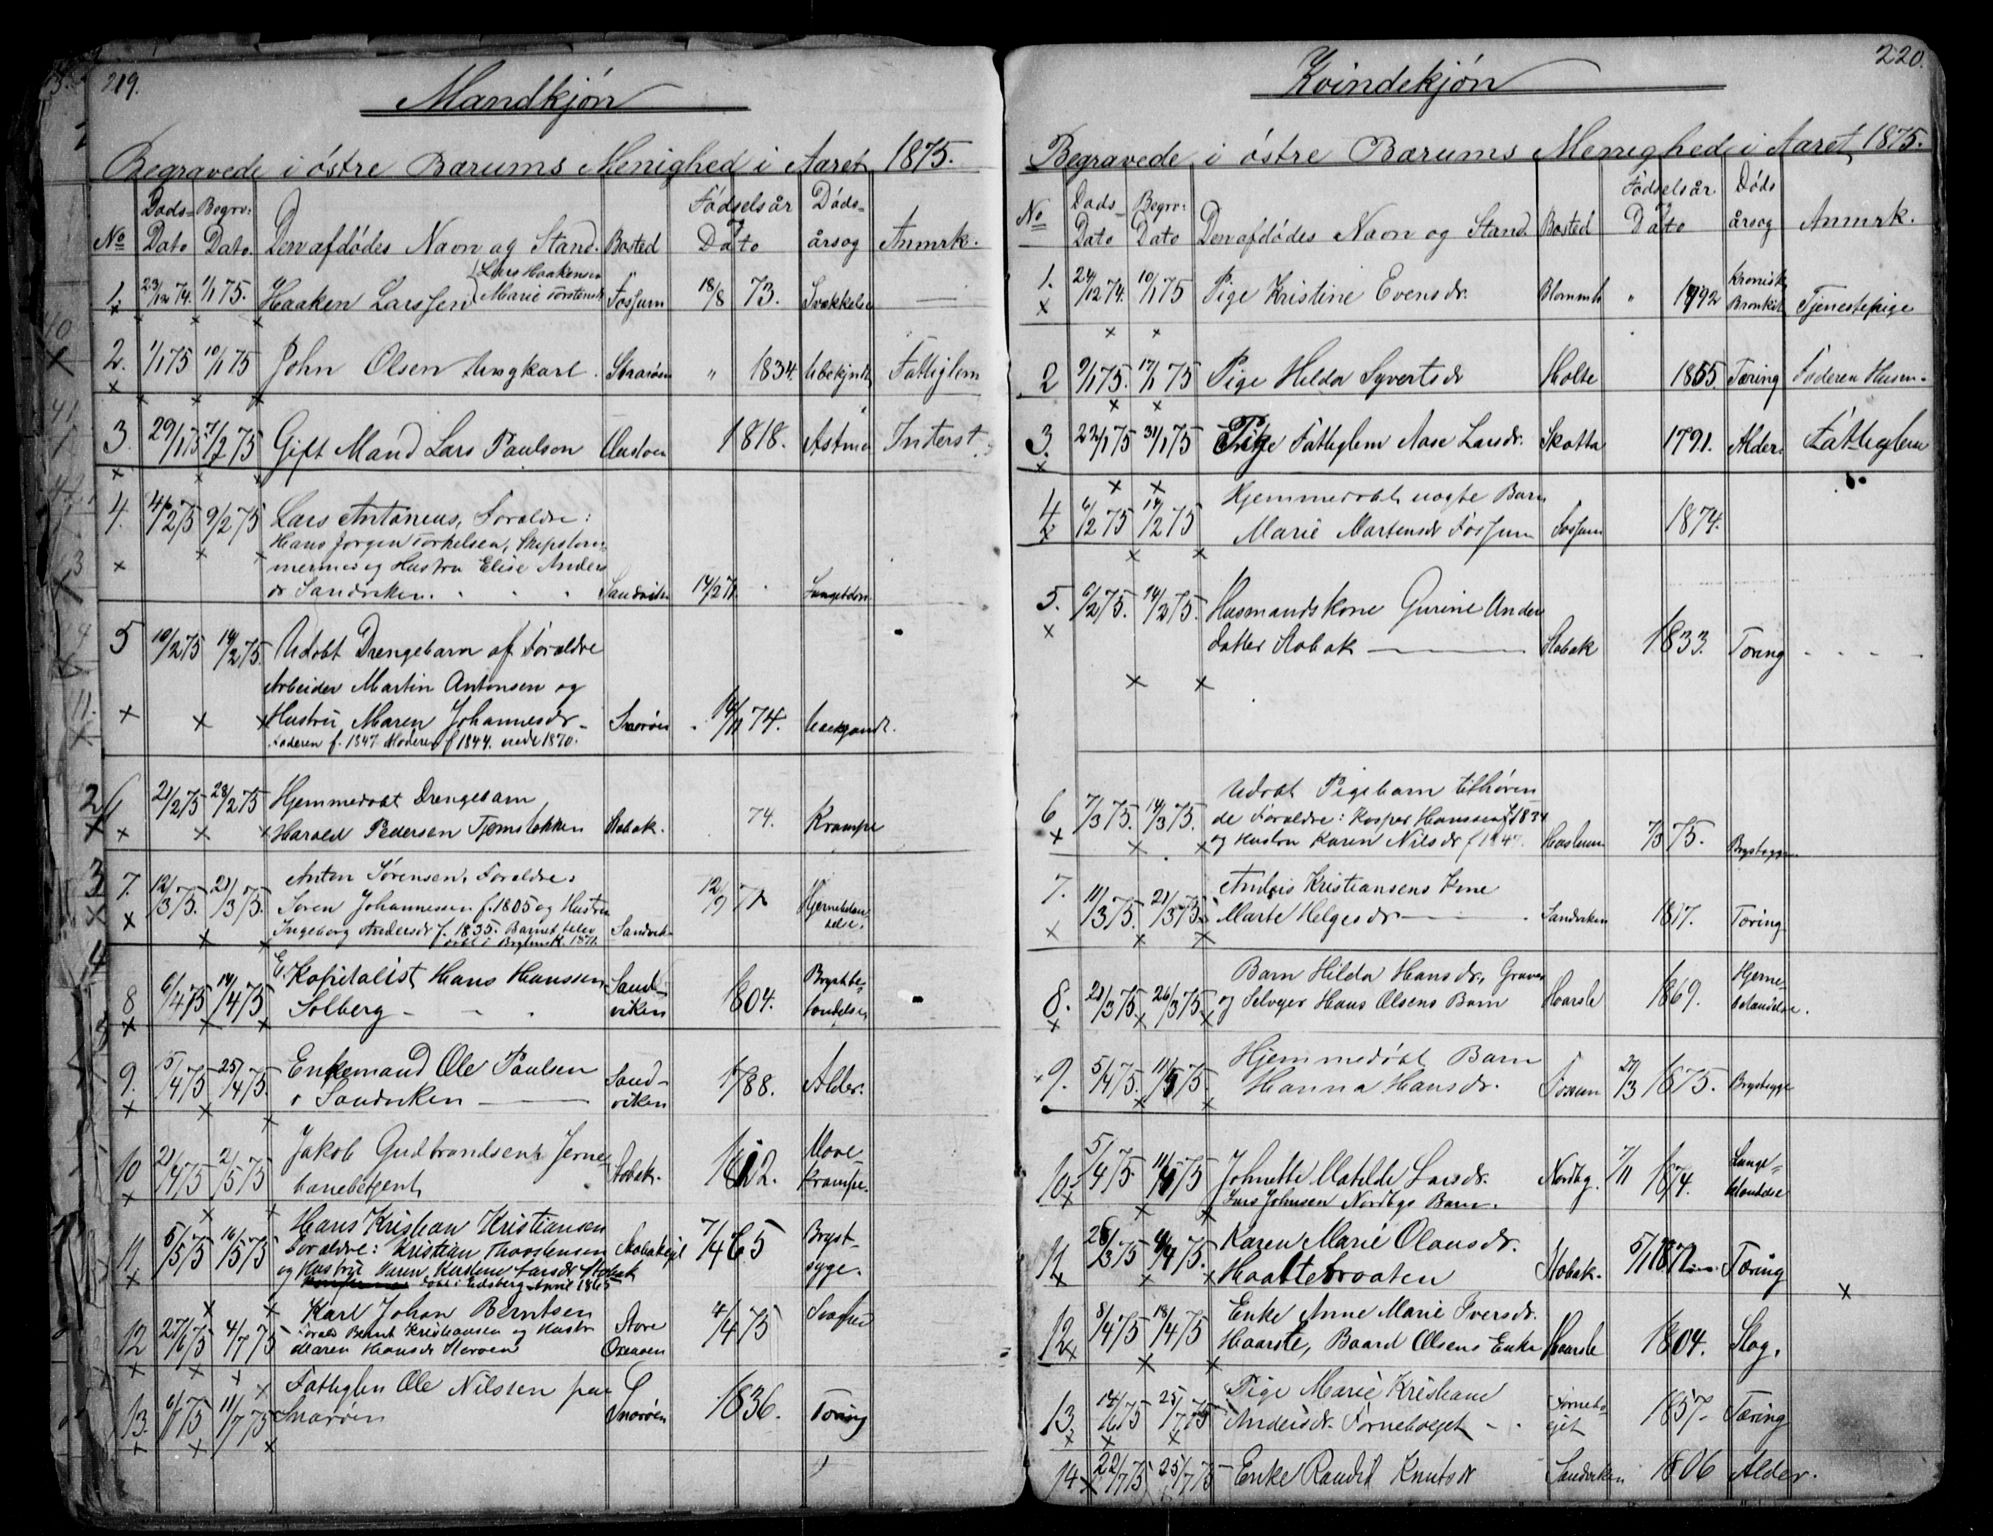 219.
Mandkjøn
Begravede i østre Bærums Menighed i Aaret 1875.
No Døds-Dato Begr: Dato Den afdødes Navn og Stand. Bosted Fødselsår og Dato Døds-årsog Anmrk.
1. 23/12 74. 1/1 75. Haaken Larssen { Lars Haakensen Marie Torstensd. Fossum 18/8 73. Svækkelse —
2. 1/1 75 10/1 75 John Olsen Ungkarl. Snarøen " 1834. Ubekjendt Fattiglem
3. 29/1 75 7/2 75 Gift Mand Lars Paulson 1818. Astma Inderst.
4. 4/2 75 9/2 75 Lars Antoneus, Forældre:
Hans Jørgen Torkelsen, Skipstøm-
mermand og Hustru Elise Anders
dr Sandviken. Sandviken 14/2 71
5 10/2 75 14/2 75. Udøbt Drengebarn af Forældre
Arbeider Martin Antonsen og
Hustru Maren Johannesdr. Snarøen 74. Ubekjendt.
Faderen f. 1847 Moderen f 1844. viede 1870.
6 21/2 75 28/2 75 Hjemmedøbt Drengebarn
Harald Pedersen Stabæk. 74. Krampe
7. 12/3 75. 21/3 75. Anton Sørensen, Forældre:
Søren Johannessen f. 1805 og Hustru
Ingeborg Andersdr f. 1835. Barnet blev
døbt i 1871. Sandvik 12/9 71 Hjernebetændelse.
8 6/4 75 14/4 75 E. Kapitalist Hans Hanssen
Solberg - - Sandviken 1804. Brystbetændelse
9. 5/4 75 25/4 75. Enkemand Ole Paulsen
i Sandviken — Sandviken 1788. Alder.
10 21/4 75 2/5 75 Jakob Gudbrandsen, Jerne-
banebetjent Stabæk. 1812. Mave Krampe.
11. 5/5 75 16/5 75 Hans Kristian Kristiansen
Forældre: Kristian Thorstensen
og Hustru Karen Kirstine Larsdr Stabæk
døbt i Eidsberg April 1865 7/4 65 Brystsyge.
12 27/6 75 4/7 75 Karl Johan Berntsen
Foræld Bernt Kristiansen og Hustru
Maren Hansdr Store Oxenøen 4/4 75
13. 6/7 75 11/7 75 Fattiglem Ole Nilssen paa
Snarøen Snarøen 1836. Tæring
220.
Kvindekjøn
Begravede i østre Bærums Menighed i Aaret 1875.
No Døds-Dato Begr: Dato Den afdødes Navn og Stand Bosted Fødselsår og Dato Døds årsog Anmrk.
1. 24/12 74. 10/1 75 Pige Kristine Evensdr. " 1792 Kronisk Bronkit Tjenestepige
2 9/1 75. 17/1 75 Pige Hilda Syvertsdr Holte 1855. Tæring Faderen Husm.
3. 22/1 75 31/1 75 Pige Fattiglem Aase Larsdr. Skotta 1791. Alder. Fattiglem
4. 6/2 75 14/2 75 Hjemmedøbt uægte Barn
Marie Martensdr Fossum Fossum 1874.
5. 6/2 75. 14/2 75. Husmandskone Gurine Anders
datter Stabæk — Stabæk 1833. Tæring
6 7/3 75. 14/3 75. Udøbt Pigebarn tilhøren-
de Forældre: Kasper Hanssen f 1834
og Hustru Karen Nilsdr f 1847. Haslum 7/3 75. Brystsyge
7. 11/3 75. 21/3 75 Kristiansens Kone
Marte Helgesdr. — Sandviken 1817. Tæring
8. 21/3 75. 26/3 75 Barn Hilda Hansdr, Graver
og Selveger Hans Olsens Barn Haarsle 1869. Hjernebetændelse.
9. 5/4 75. 11/4 75. Hjemmedøbt Barn
Hanna Hansdr. Fossum 27/3 1875. Brystsyge
10. 5/4 75. 11/4 75 Johnette Matilde Larsdr. Nordby. 7/11 1874. Lungebetændelse
Lars Johnsen Nordbys Barn.
11. 28/3 75 4/4 75. Karen Marie Olausdr.
Haattebraaten Stabæk. 5/1 187 Tæring
12. 8/4 75 18/4 75 Enke Anne Marie Iversdr.
Haarsle, Baard Olsens Enke Haarsle 1804. Slag.
13. 14/6 75 25/7 75 Pige Marie Kristiane
Andersdr. Forneboejet - Forneboejet 1857. Tæring
14 22/7 75 25/7 75 Enke Randid Knutsdr Sandviken 1806 Alder.